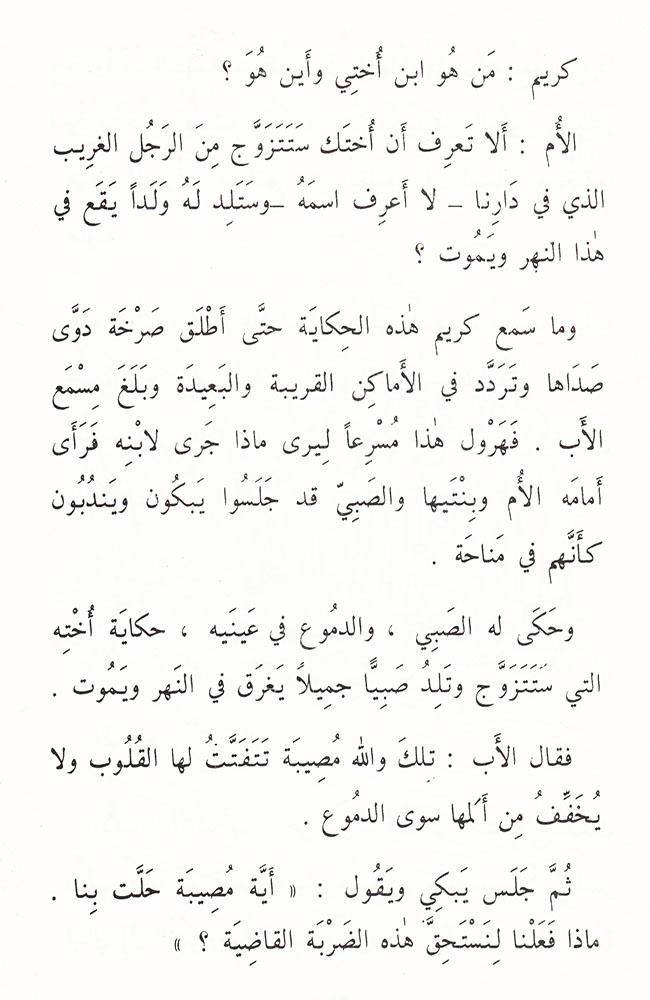 كريم : مَن هُو ابن أُختِي وأَين هُوَ ؟
الأُم : أَلا تَعرِف أَن أُختَك سَتَتَزَوَّج مِنَ الرَجُل الغرِيب
الذي في دَارِنا – لا أَعرِف اسمَهُ –وسَتَلِد لَهُ وَلَداً يَقَع في
هٰذا النهر ويَمُوت ؟
وما سَمع كريم هٰذه الحِكايَة حتَّى أَطْلَق صَرْخَة دَوَّى
صَدَاها وتَرَدَّد في الأَماكِن القريبة والبَعِيدَة وبَلَغَ مِسْمَع
الأَب . فَهَرْول هٰذا مُسْرِعاً لِيرى ماذا جَرى لابْنِه فَرَأَى
أَمامَه الأُم وبِنْتَيها والصَبِيّ قد جَلَسُوا يَبكُون ويَندُبُون
كأَنَّهم في مَناحَة .
وحَكَى له الصَبِي ، والدمُوع في عَينَيه ، حكايَة أُخْتِه
التي سَتَتَزَوَّج وتَلِدُ صَبِيًّا جمِيلاً يَغرَق في النَهر ويَمُوت .
فقال الأَب : تلِكَ والله مُصِيبَة تَتَفَتَّتُ لها القُلُوب ولا
يُخَفِّفُ مِن أَلمها سوى الدمُوع .
ثُمَّ جَلَس يَبكِي ويَقُول : « أَيَّة مُصِيبَة حَلَّت بِنا .
ماذا فَعَلْنا لِنَسْتَحِقَّ هٰذه الضَرْبَة القاضِيَة ؟ »